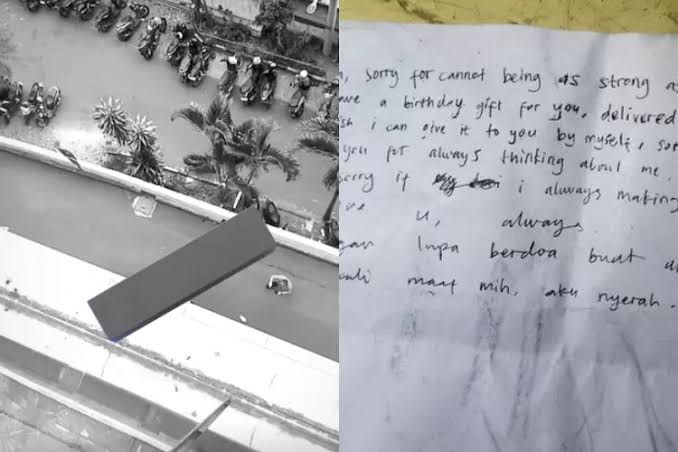 , sorry for cannot being as strong as
ave a birthday gift for you, delivered
sh i can give it to you by myself, sor
you for always thinking about me.
orry if i always making
ve u, always.
gan lupa berdoa buat d
kali maaf mih, aku nyerah.